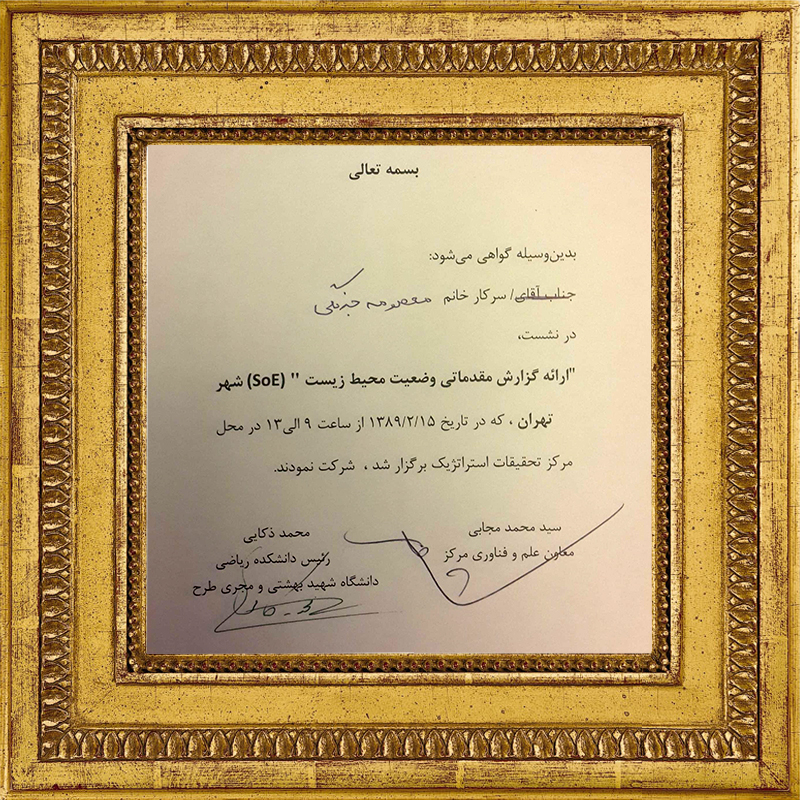 بسمه تعالی
بدین‌وسیله گواهی می‌شود:
جناب آقای/ سرکار خانم معصومه
در نشست،
"ارائه گزارش مقدماتی وضعیت محیط زیست " (SoE) شهر
تهران ، که در تاریخ ۱۳۸۹/۲/۱۵ از ساعت ۹ الی۱۳ در محل
مرکز تحقیقات استراتژیک برگزار شد ، شرکت نمودند.
سید محمد مجابی
معاون علم و فناوری مرکز
محمد ذکایی
رئیس دانشکده ریاضی
دانشگاه شهید بهشتی و مجری طرح